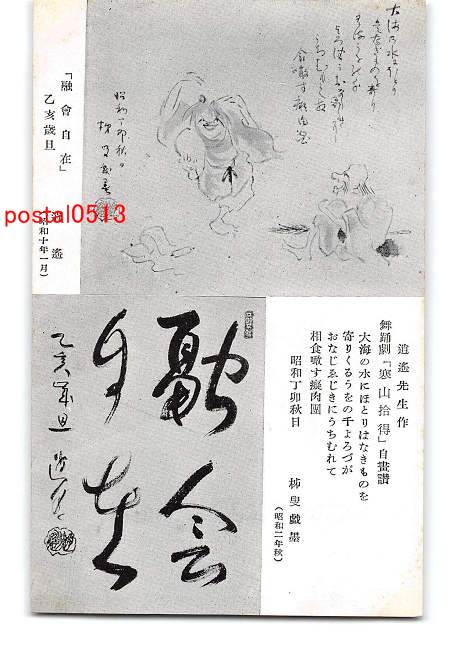 大海の水にほとり
はなきものを寄り
くるうをの千
よろづかおな
ゑじきに
うちむれて
相食噉す癡肉団
昭和丁卯秋日
「融會自在」
乙亥歳旦
逍遙
(昭和十年一月)
postal0513
逍遙先生作
舞踊劇『寒山拾得』自畫讃
大海の水にほとりはなきものを
寄りくるうをの千よろづが
おなじゑじきにうちむれて
相食噉す癡肉團
昭和丁卯秋日
柿叟戯墨
(昭和二年秋)
融会
自在
乙亥歳旦 逍遙